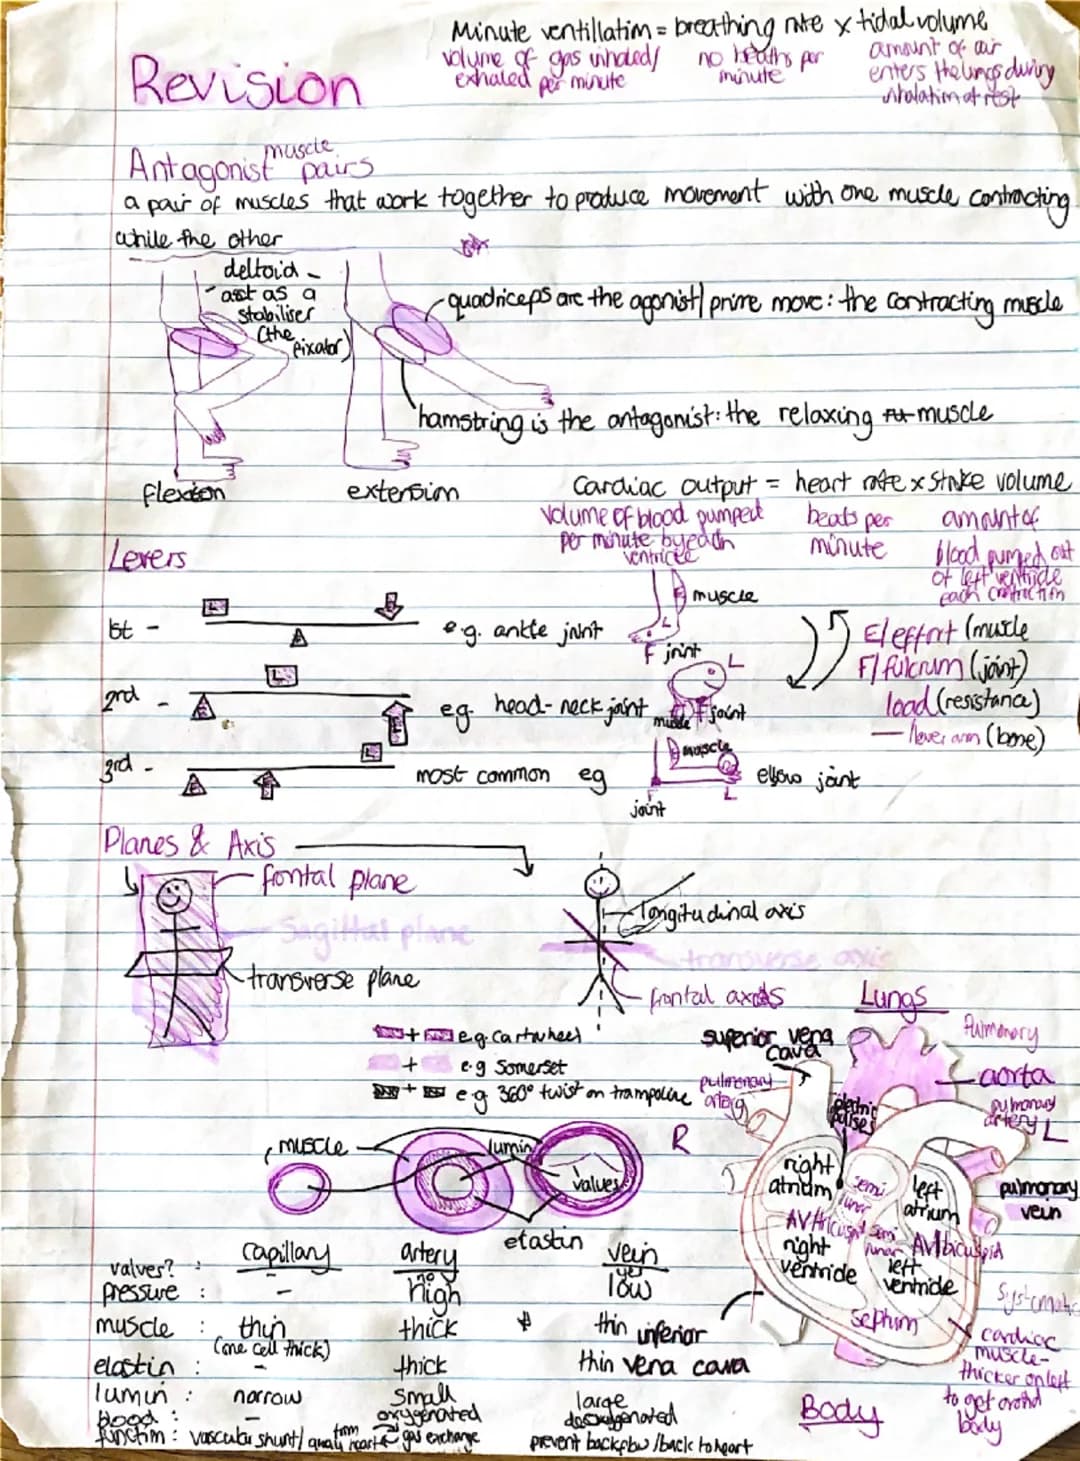 Minute ventillation = breathing rate x tidal volume
volume of gas inhaled/ exhaled per minute
no beaths per minute
amount of air enters the lungs during inhalation at rest
Revision
Antagonist muscle pairs
a pair of muscles that work together to produce movement with one muscle contracting
while the other
deltoid -
act as a
stabiliser
(the fixator)
quadriceps are the agonist/ prime move: the contracting muscle
hamstring is the antagonist: the relaxing muscle
flexion
extension
Cardiac output = heart rate x stroke volume
volume of blood pumped per minute by each ventricle
beats per minute
amount of blood pumped out of left ventricle each contraction
Levers
1st - L e.g. ankle joint
muscle
L
F joint
E/effort (muscle
F/ fulcrum (joint)
load (resistance)
— lever arm (bone)
2nd - L eg. head-neck joint
L
muscle F joint
3rd - L most common eg
muscle
elbow joint
joint
L
Planes & Axis
frontal plane
Sagittal plane
transverse plane
longitudinal axis
transverse axis
frontal axis
+ e.g. Cartwheel
+ e.g Somerset
+ e.g 360° twist on trampoline
Lungs
superior vena cava
Pulmonary
aorta
pulmonary artery
pulmonary artery L
electric pulses
R
right atrium
semi lunar
left atrium
pulmonary vein
AV/tricuspid
semi lunar
AV/bicuspid
right ventricle
left ventricle
Septum
Systematic
cardiac muscle- thicker on left to get around body
inferior vena cava
Body
muscle
lumin
values
elastin
capillary artery vein
valves? : - no yes
pressure : - high low
muscle : thin (one cell thick) thick thin
elastin : - thick thin
lumin : narrow small large
blood : - oxygenated deoxygenated
function : vascular shunt/ gas exchange from heart prevent backflow /back to heart